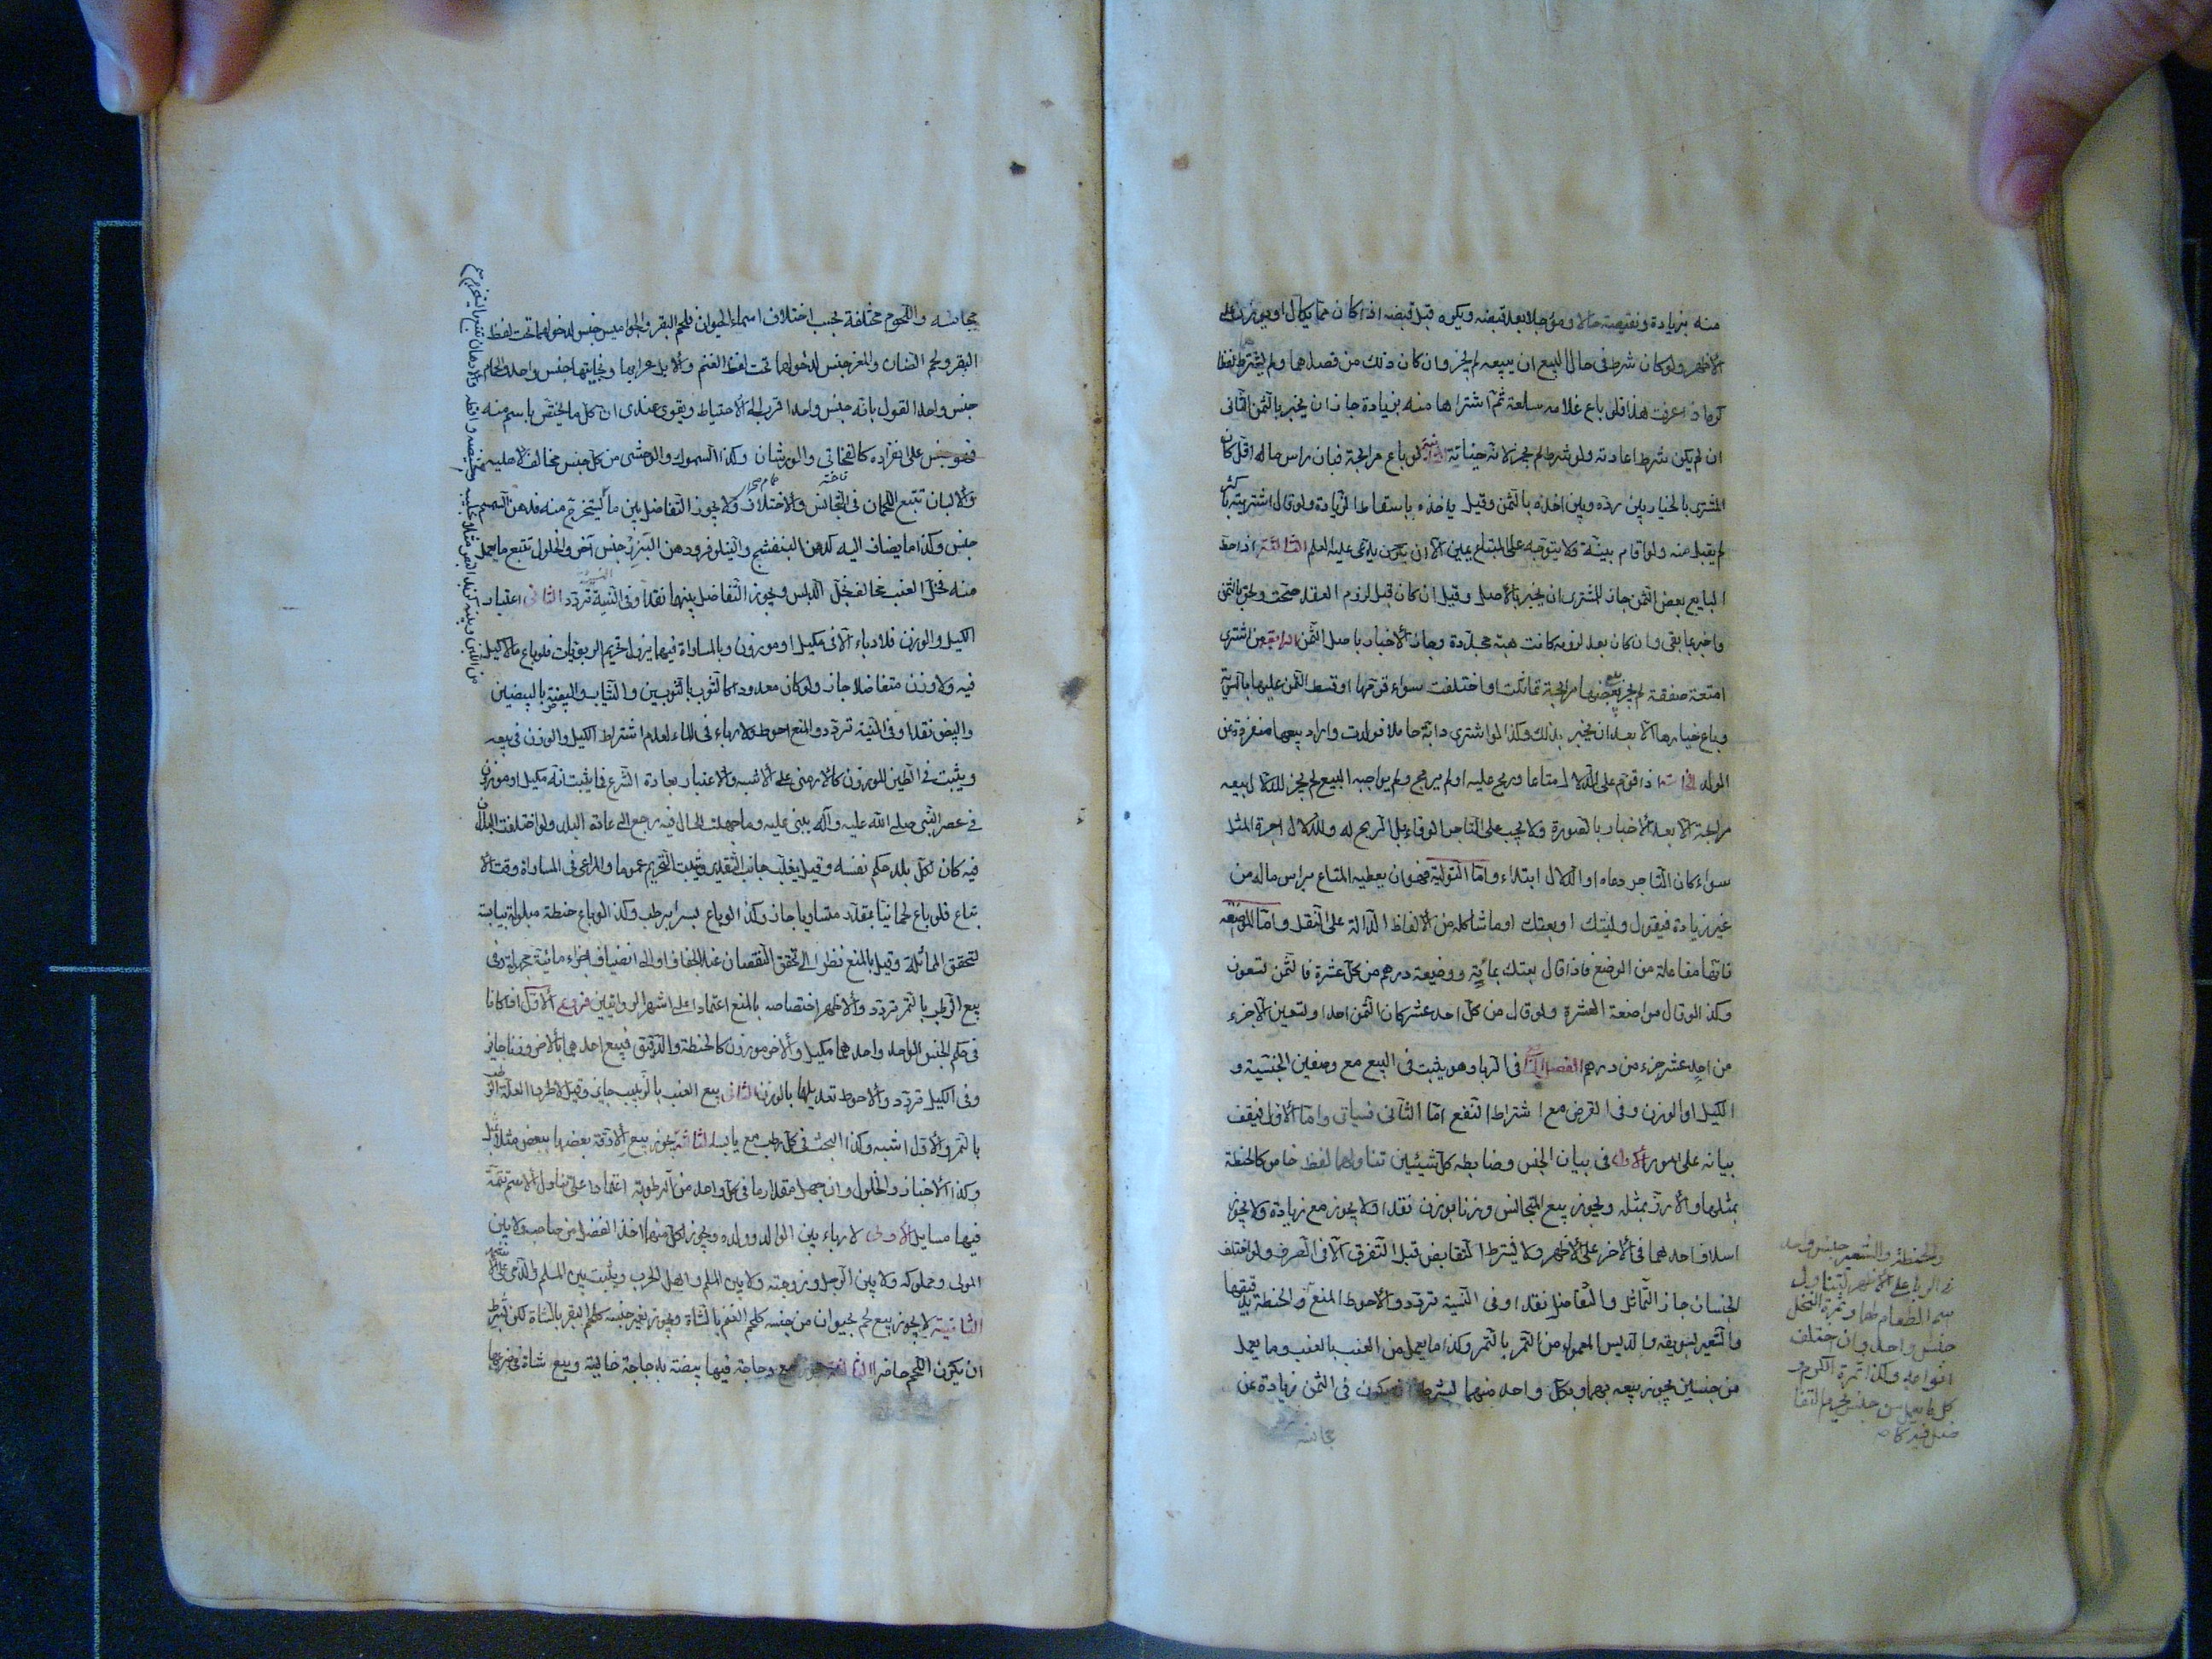 منه بزيادة ونقيصة حالا ومؤجلا بعد قبضه ويكره قبل قبضه اذا كان مما يكال او يوزن على
الاظهر ولو كان شرط في حال البيع ان يبيعه لم يجز وان كان ذلك من قصدهما ولم يشترط لفظا
كره اذا عرفت هذا فلو باع غلامه سلعة ثم اشتراها منه بزيادة جاز ان يخبر بالثمن الثاني
ان لم يكن شرط اعادته ولو شرط لم يجز لانه خيانة الثانية لو باع مرابحة فبان راس ماله اقل كان
المشتري بالخيار بين رده وبين اخذه بالثمن وقيل ياخذه باسقاط الزيادة ولو قال اشتريته باكثر
لم يقبل منه ولو اقام بينة ولا يتوجه على المبتاع يمين الا ان يدعي عليه العلم الثالثة اذا حط
البايع بعض الثمن جاز للمشتري ان يخبر بالاصل وقيل ان كان قبل لزوم العقد صحت ولحق بالثمن
واخبر بما بقي وان كان بعد لزومه كانت هبة مجددة وجاز الاخبار باصل الثمن الرابعة من اشترى
امتعة صفقة لم يجز بيع بعضها مرابحة تماثلت او اختلفت سواء قومها او قسط الثمن عليها بالسوية
وباع خيارها الا بعد ان يخبر بذلك وكذا لو اشترى دابة حاملا فولدت واراد بيعها منفردة عن
الولد الخامسة اذا قوم على الدلال متاعا وربح عليه او لم يربح ولم يواجبه البيع لم يجز للدلال بيعه
مرابحة الا بعد الاخبار بالصورة ولا يجب على التاجر الوفاء بل الربح له وللدلال اجرة المثل
سواء كان التاجر دعاه او الدلال ابتداء واما التولية فهو ان يعطيه المتاع براس ماله من
غير زيادة فيقول وليتك او بعتك او ما شاكله من الالفاظ الدالة على النقل واما المواضعة
فانها مفاعلة من الوضع فاذا قال بعتك بمائة ووضيعة درهم من كل عشرة فالثمن تسعون
وكذا لو قال مواضعة العشرة ولو قال من كل احد عشر كان الثمن احدا وتسعين الا جزء
من احد عشر جزء من درهم الفصل في الربا وهو يثبت في البيع مع وصفين الجنسية و
الكيل او الوزن وفي القرض مع اشتراط النفع اما الثاني فسياتي واما الاول فيقف
بيانه على امور الاول في بيان الجنس وضابطه كل شيئين تناولهما لفظ خاص كالحنطة
بمثلها والارز بمثله ويجوز بيع المتجانس وزنا بوزن نقدا ولا يجوز مع زيادة ولا يجوز
اسلاف احدهما في الاخر على الاظهر ولا يشترط التقابض قبل التفرق الا في الصرف ولو اختلف
الجنسان جاز التماثل والتفاضل نقدا وفي النسية تردد والاحوط المنع والحنطة بدقيقها
والشعير بسويقه والدبس المعمول من التمر بالتمر وكذا ما يعمل من العنب بالعنب وما يعمل
من جنسين يجوز بيعه بهما وبكل واحد منهما بشرط ان يكون في الثمن زيادة عن
مجانسه
والحنطة والشعير جنس واحد
في الربا على الاظهر لتناول
اسم الطعام لهما وثمرة النخل
جنس واحد وان اختلفت
انواعه وكذا ثمرة الكرم و
كل ما يعمل من جنس يحرم التفا
ضل فيه
مجانسه واللحوم مختلفة بحسب اختلاف اسماء الحيوان فلحم البقر والجواميس جنس لدخولهما تحت لفظ
البقر ولحم الضان والمعز جنس لدخولهما تحت لفظ الغنم والابل عرابها وبخاتيها جنس واحد والحمام
جنس واحد القول بانه جنس واحد اقرب الى الاحتياط ويقوى عندي ان كل ما يختص باسم منه
فهو جنس على انفراده كالفخاتي والورشان وكذا السموك والوحشي من كل جنس مخالف لاهليه
والالبان تتبع اللحمان في التجانس والاختلاف ولا يجوز التفاضل بين ما يستخرج منه فدهن السمسم
جنس وكذا ما يضاف اليه كدهن البنفسج والنيلوفر ودهن البزر جنس آخر والخلول تتبع ما يعمل
منه فخل العنب مخالف لخل الدبس ويجوز التفاضل بينهما نقدا وفي النسية تردد الثاني اعتبار
الكيل والوزن فلا رباء الا في مكيل او موزون وبالمساواة فيهما يزول تحريم الربويات فلو باع ما لا كيل
فيه ولا وزن متفاضلا جاز ولو كان معدودا كالثوب بالثوبين والثياب والبيضة بالبيضتين
والبيض نقدا وفي النسية تردد والمنع احوط ولا رباء في الماء لعدم اشتراط الكيل والوزن في بيعه
ويثبت في الطين الموزون كالارمني على الاشبه والاعتبار بعادة الشرع فما يثبت انه مكيل او موزون
في عصر النبي صلى الله عليه وآله بني عليه وما جهلت الحال فيه رجع الى عادة البلد ولو اختلفت البلدان
فيه كان لكل بلد حكم نفسه وقيل يغلب جانب التقدير ويثبت التحريم عموما والمراعى في المساواة وقت الا
بتياع فلو باع لحما نيا بمقدد متساويا جاز وكذا لو باع بسرا برطب وكذا لو باع حنطة مبلولة بيابسة
لتحقق المماثلة وقيل بالمنع نظرا الى تحقق النقصان عند الجفاف او الى انضياف اجزاء مائية مجهولة وفي
بيع الرطب بالتمر تردد والاظهر اختصاصه بالمنع اعتمادا على اشهر الروايتين فروع الاول اذا كانا
في حكم الجنس الواحد واحدهما مكيل والاخر موزون كالحنطة والدقيق فبيع احدهما بالاخر وزنا جايز
وفي الكيل تردد والاحوط تعديلهما بالوزن الثاني بيع العنب بالزبيب جايز وقيل لا طرد العلة الرطب
بالتمر والاول اشبه وكذا البحث في كل رطب مع يابسه الثالث يجوز بيع الادقة بعضها ببعض مثلا بمثل
وكذا الاخباز والخلول وان جهل مقدار ما في كل واحد من الرطوبة اعتمادا على تناول الاسم تتمة
فيها مسايل الاولى لا رباء بين الوالد وولده ويجوز لكل منهما اخذ الفضل من صاحبه ولا بين
المولى ومملوكه ولا بين الرجل وزوجته ولا بين المسلم واهل الحرب ويثبت بين المسلم والذمي على الاشهر
الثانية لا يجوز بيع لحم بحيوان من جنسه كلحم الغنم بالشاة ويجوز بغير جنسه كلحم البقر بالشاة لكن بشرط
ان يكون اللحم حاضرا الثالثة يجوز بيع دجاجة فيها بيضة بدجاجة خالية وبيع شاة في ضرعها